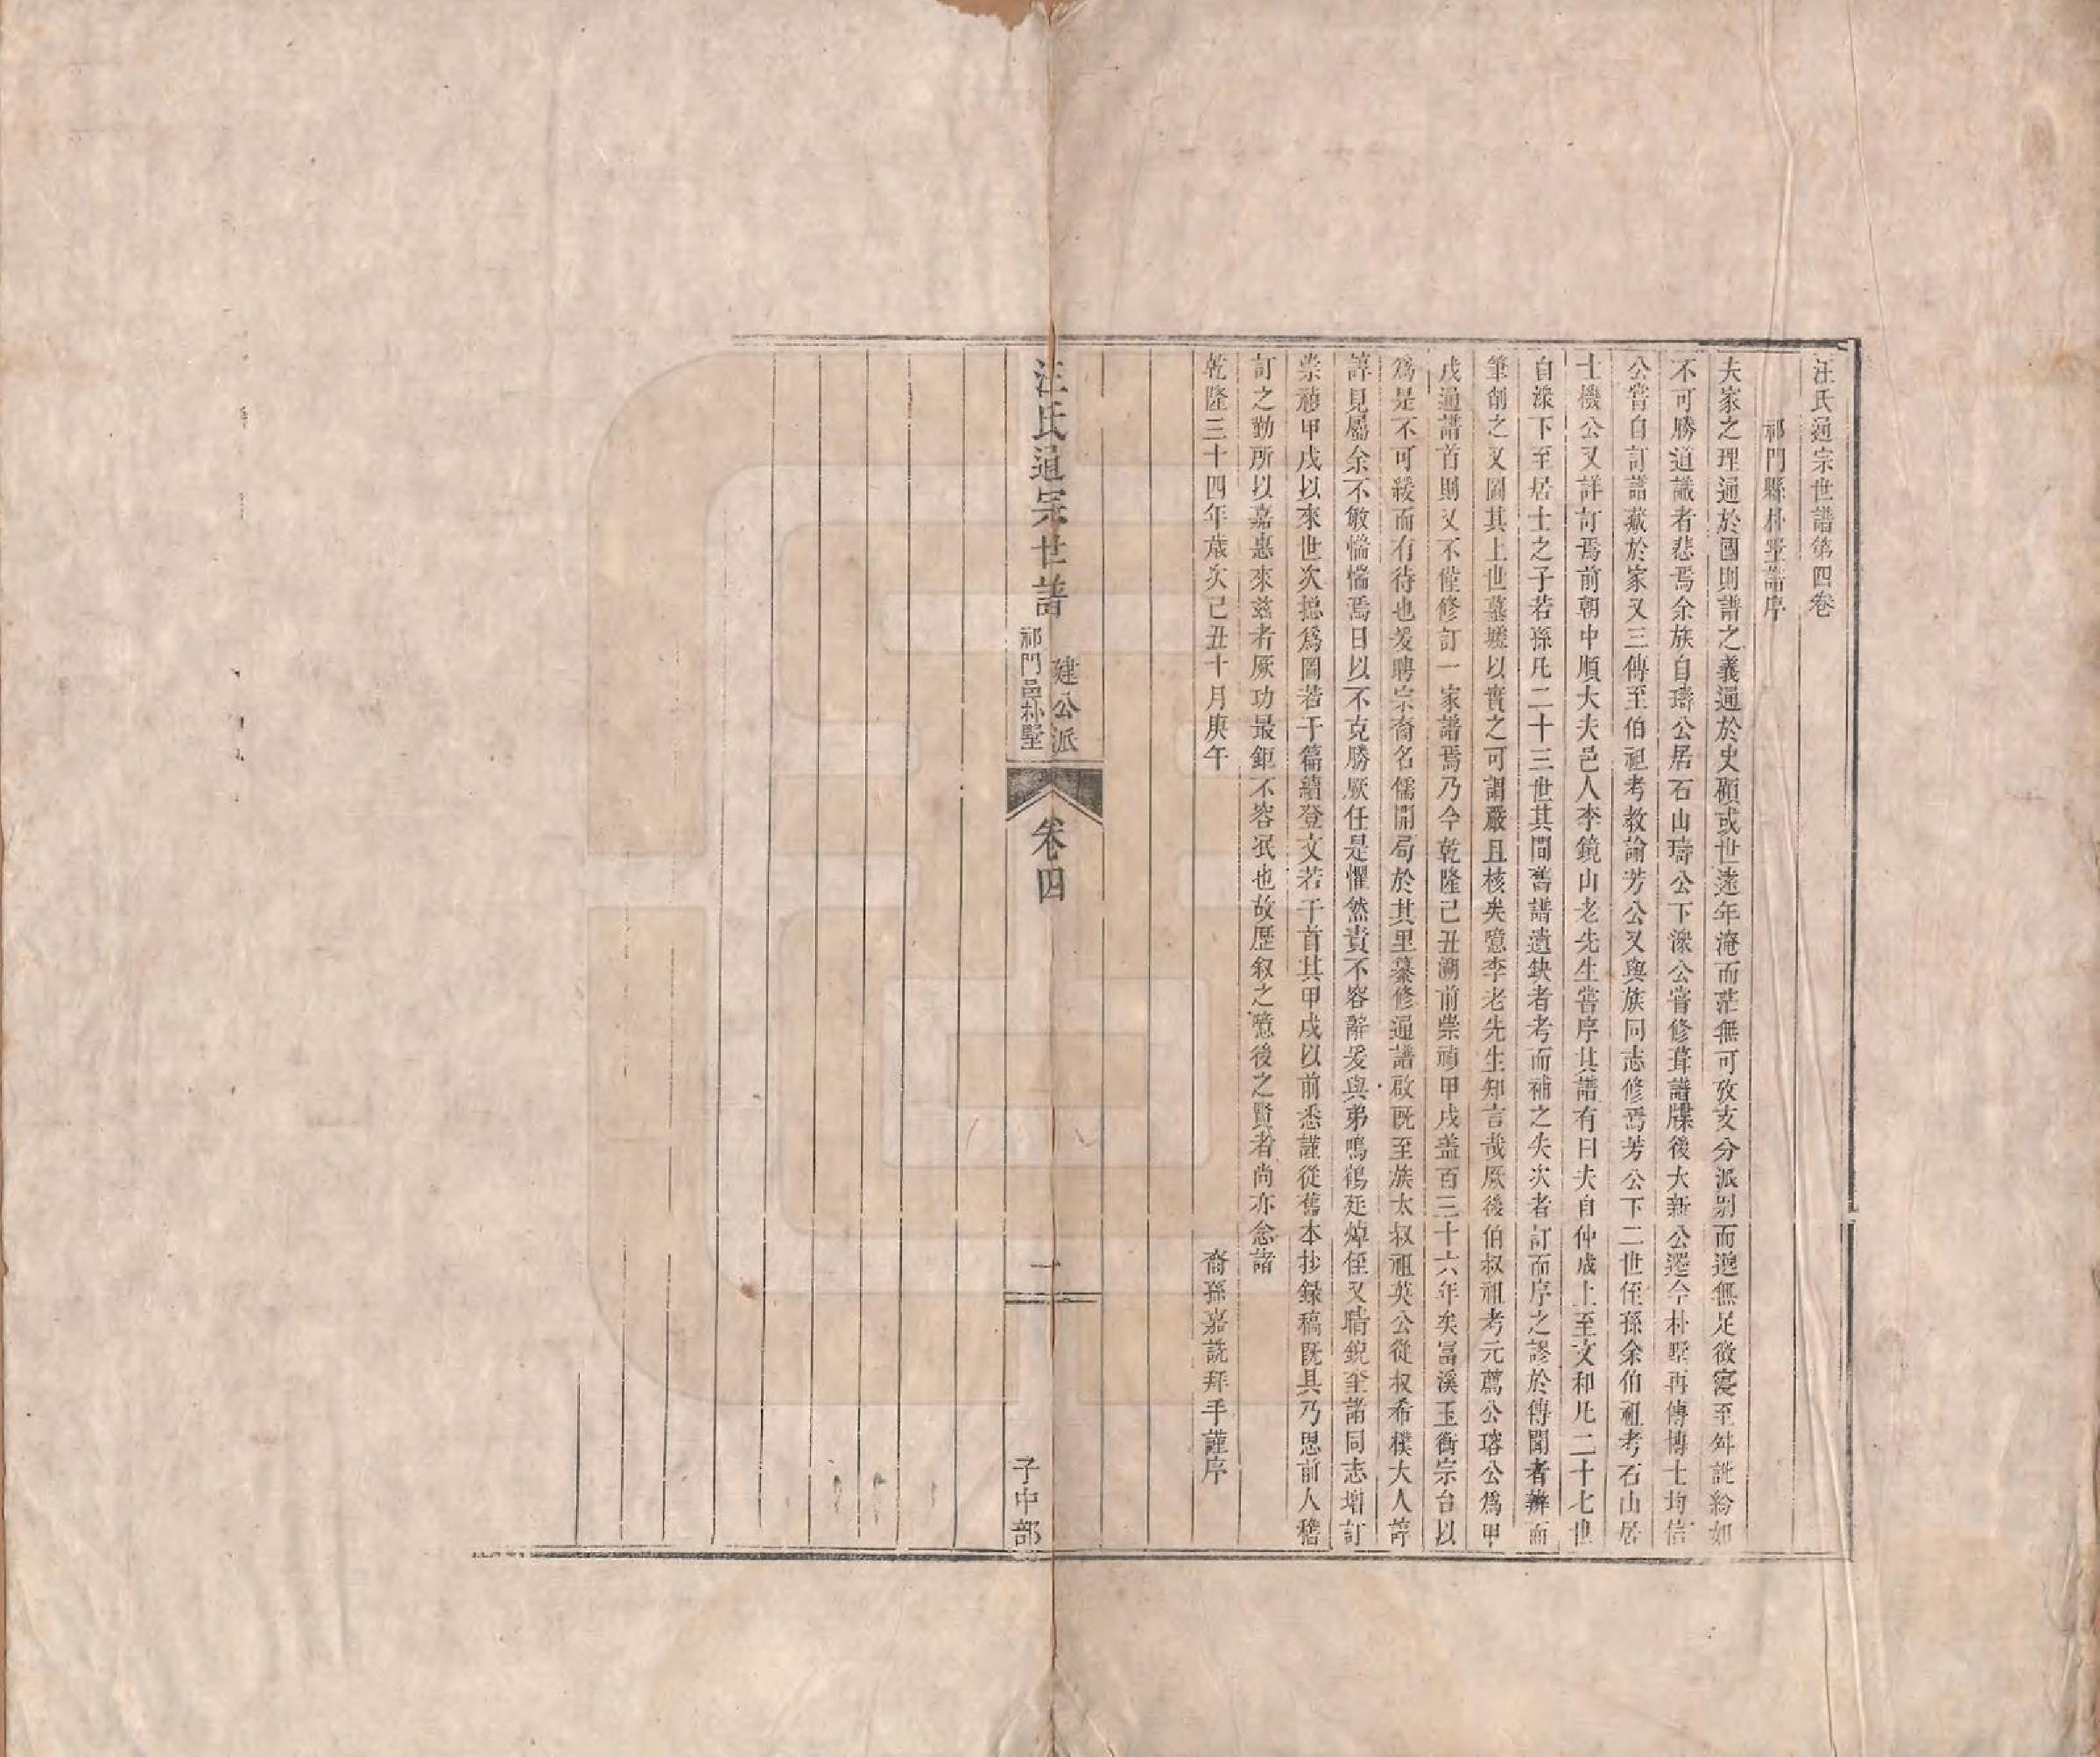 汪氏通宗世譜第四卷
祁門縣朴墅譜序
夫家之理通於國則譜之義通於史顧或世遠年淹而茫無可攷支分派別而邈無足徵寖至舛訛紛如
不可勝道識者悲焉余族自璹公居石山璹公下濴公嘗修葺譜牒後大新公遷今朴墅再傳博士均信
公嘗自訂譜藏於家又三傳至伯祖考教諭芳公又與族同志修焉芳公下二世侄孫余伯祖考石山居
士機公又詳訂焉前朝中順大夫邑人李鏡山老先生嘗序其譜有曰夫自仲成上至文和凡二十七世
自濴下至居士之子若孫凡二十三世其間舊譜遺缺者考而補之失次者訂而序之謬於傳聞者辨而
筆削之又圖其上世墓墟以實之可謂嚴且核矣噫李老先生知言哉厥後伯叔祖考元薦公瑢公爲甲
戌通譜首則又不僅修訂一家譜焉乃今乾隆己丑溯前崇禎甲戌蓋百三十六年矣富溪玉衡宗台以
爲是不可緩而有待也爰聘宗裔名儒開局於其里纂修通譜啟既至族太叔祖英公從叔希樸大人諄
諄見屬余不敏惴惴焉日以不克勝厥任是懼然責不容辭爰與弟鳴鶴廷焯侄又晴銳至諸同志增訂
崇禎甲戌以來世次捴爲圖若干篇續登文若干首其甲戌以前悉謹從舊本抄録稿既具乃思前人稽
訂之勤所以嘉惠來兹者厥功最鉅不容泯也故歷叙之噫後之賢者尚亦念諸
乾隆三十四年歲次己丑十月庚午
裔孫嘉誂拜手謹序
汪氏通宗世譜
建公派
祁門邑朴墅
卷四
一
子中部